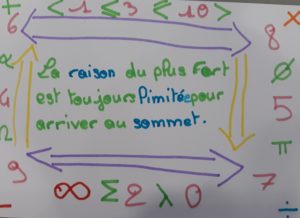 + < 1 ≤ 3 < 10 > ×
6 8
La raison du plus fort
est toujours Pimitée pour
arriver au sommet.
α 4 2
∅ 5 π
9 7
− ∞ Σ 2 λ 0 ÷